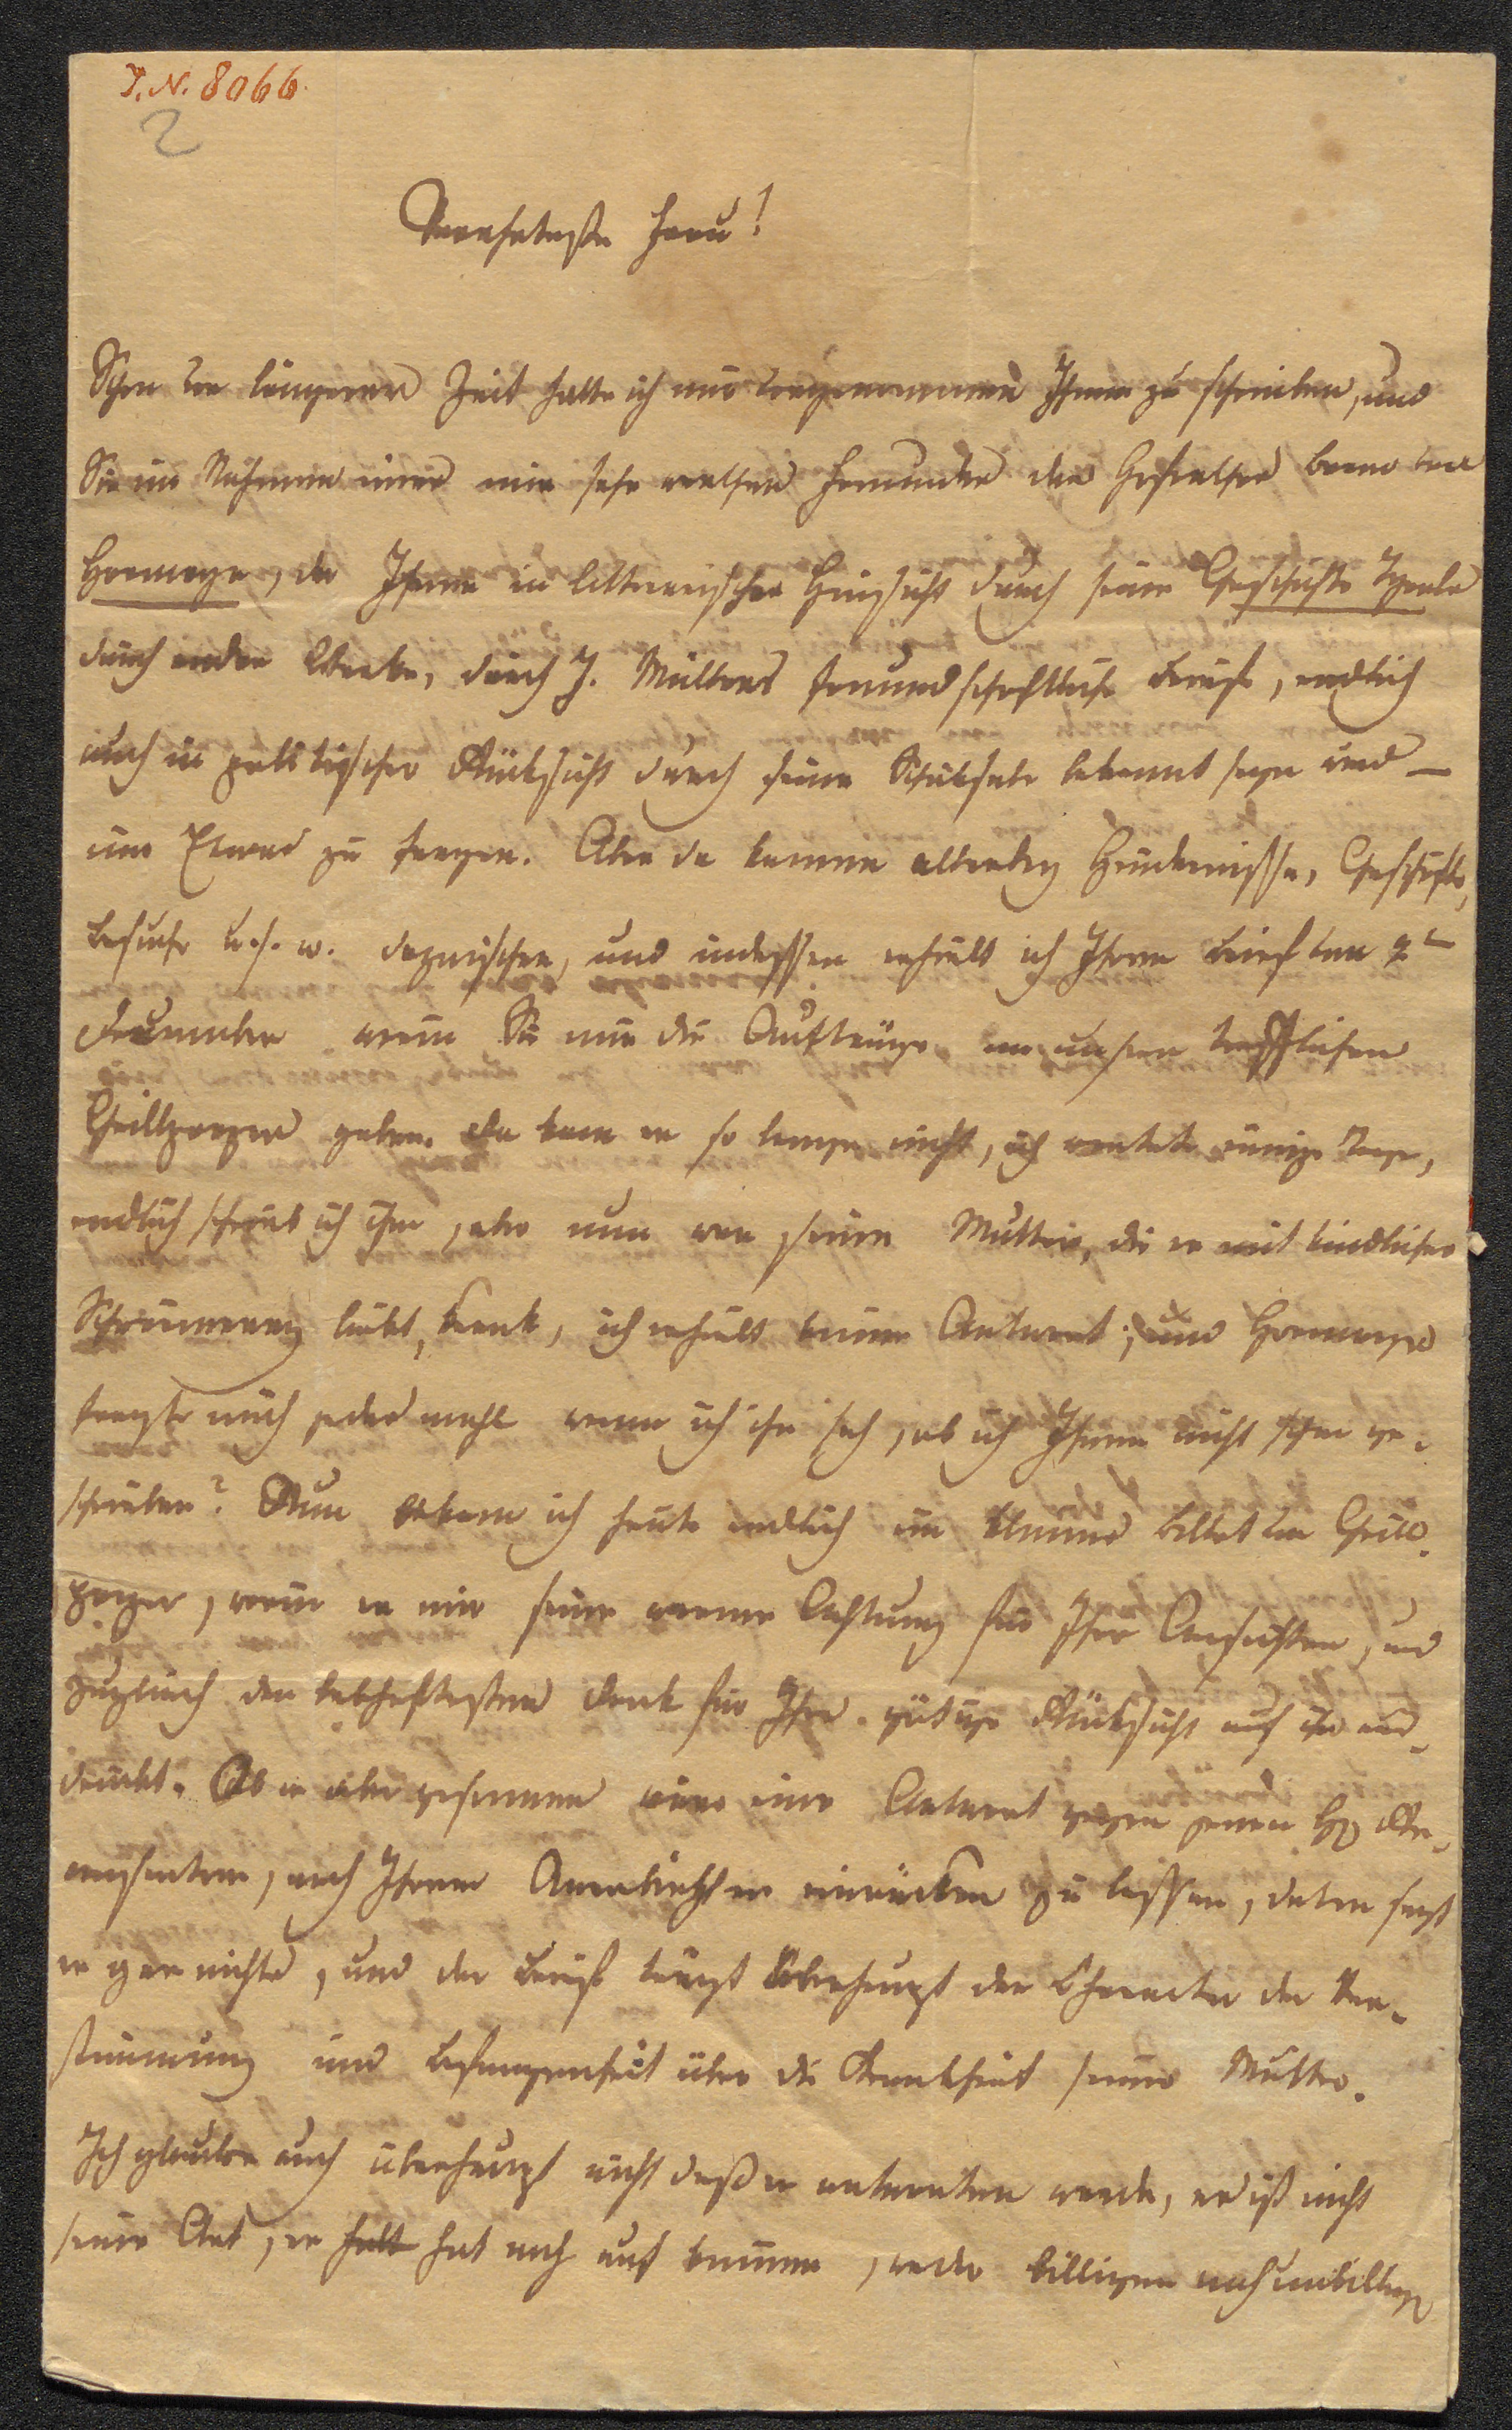 I. N. 8066
2
Verehrteste Frau!
Schon vor längerer Zeit hatte ich mir vorgenommen Ihnen zu schreiben, und
Sie im Nahmen eines mir sehr werthen Freundes des Hofrathes Baron von
Hormayr, der Ihnen in litterarischer Hinsicht durch seine Geschichte Tyrols
durch andre Werke, durch J. Müllers freundschaftliche Briefe, endlich
auch in politischer Rücksicht durch seine Schicksale bekannt seyn wird –
um Etwas zu fragen. Aber da kamen allerley Hindernisse, Geschäfte,
Besuche u.s.w. dazwischen, und indessen erhielt ich Ihren Brief vom
December worin Sie mir die Aufträge an unsern trefflichen
Grillparzer gaben. Da kam er so lange nicht, ich wartete einige Tage,
endlich schrieb ich ihm, aber nun war seine Mutter, die er mit kindlicher
Schwärmerey liebt, krank, ich erhielt keine Antwort; und Hormayr
fragte mich jedes mahl wenn ich ihn sah, ob ich Ihnen nicht schon ge-
schrieben? Nun bekam ich heute endlich ein kleines Billet von Grill-
parzer, worin er mir seine warme Achtung für Ihre Ansichten, und
zugleich den lebhaftesten Dank für Ihre gütige Rücksicht auf ihn aus-
drückt. Ob er aber gesonnen wäre eine Antwort gegen jenen H Re-
censenten, nach Ihrem einrücken zu lassen, davon sagt
er gar nichts, und der Brief trägt überhaupt den Character der Ver-
stimmung und Befangenheit über die Krankheit seiner Mutter.
Ich glaube auch überhaupt nicht daß er antworten werde, es ist nicht
seine Art, er hatt hat noch auf keinen, weder billigen noch unbilligen